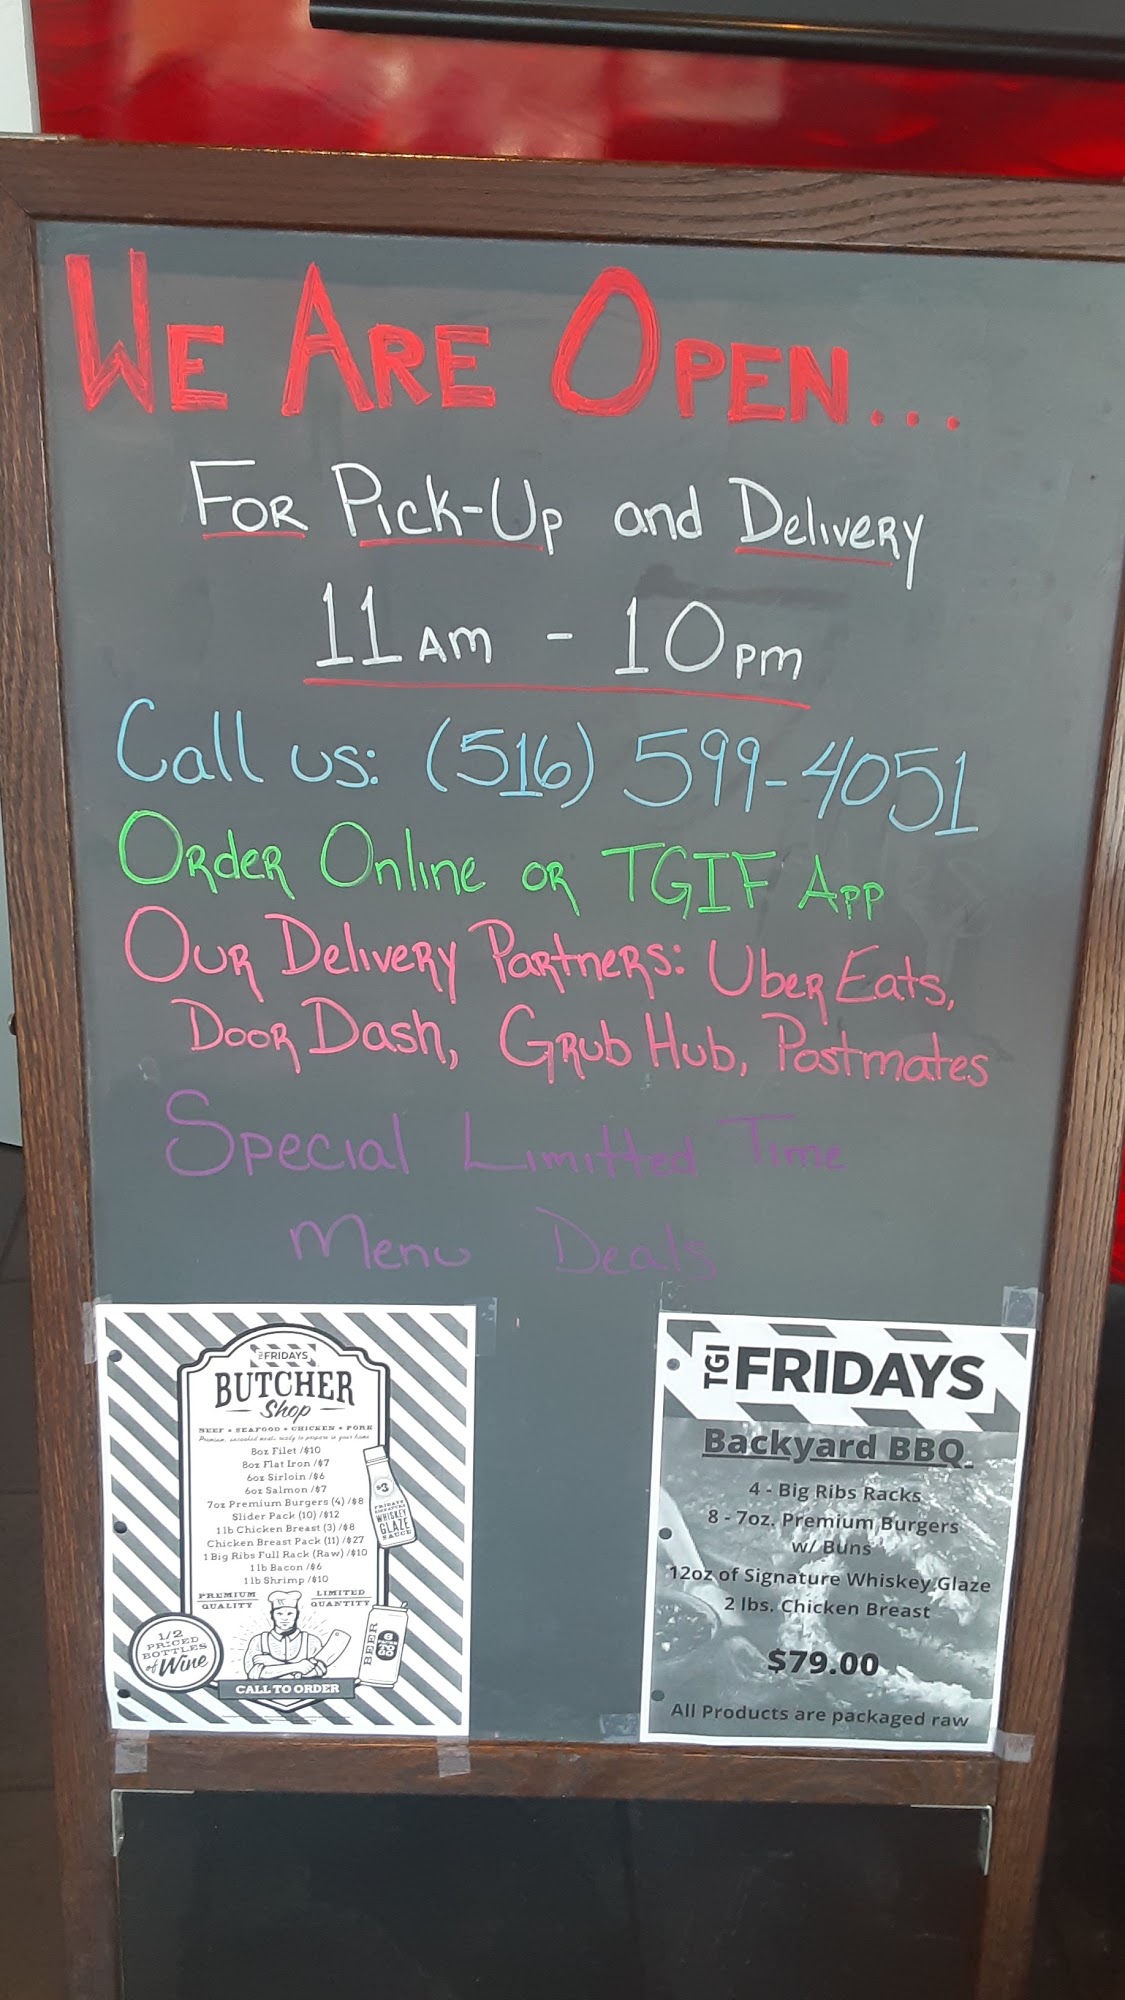 WE ARE OPEN...
FOR PICK-UP and DELIVERY
11AM - 10PM
Call us: (516) 599-4051
ORDER ONLINE OR TGIF APP
OUR DELIVERY PARTNERS: UBER EATS,
DOOR DASH, GRUB HUB, POSTMATES
SPECIAL LIMITTED TIME
MENU DEALS
FRIDAYS
BUTCHER
Shop
BEEF • SEAFOOD • CHICKEN • PORK
Premium, uncooked meats ready to prepare in your home
8oz Filet /$10
8oz Flat Iron /$7
6oz Sirloin /$6
6oz Salmon /$7
7oz Premium Burgers (4) /$8
Slider Pack (10) /$12
1 lb Chicken Breast (3) /$8
Chicken Breast Pack (11) /$27
1 Big Ribs Full Rack (Raw) /$10
1 lb Bacon /$6
1 lb Shrimp /$10
$3
FRIDAYS
SIGNATURE
WHISKEY
GLAZE
SAUCE
PREMIUM
QUALITY
LIMITED
QUANTITY
1/2
PRICED
BOTTLES
of Wine
BEER
6
PACKS
TO
GO
CALL TO ORDER
TGI FRIDAYS
Backyard BBQ
4 - Big Ribs Racks
8 - 7oz. Premium Burgers
w/ Buns
12oz of Signature Whiskey Glaze
2 lbs. Chicken Breast
$79.00
All Products are packaged raw